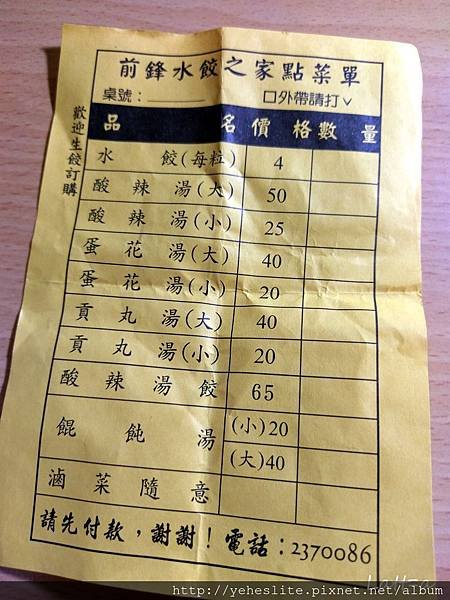 前鋒水餃之家點菜單
桌號：______ 口外帶請打∨
歡迎生餃訂購
品名 價格 數量
水餃(每粒) 4
酸辣湯(大) 50
酸辣湯(小) 25
蛋花湯(大) 40
蛋花湯(小) 20
貢丸湯(大) 40
貢丸湯(小) 20
酸辣湯餃 65
餛飩湯 (小)20
(大)40
滷菜隨意
請先付款，謝謝！電話：2370086
http://yeheslite.pixnet.net/album